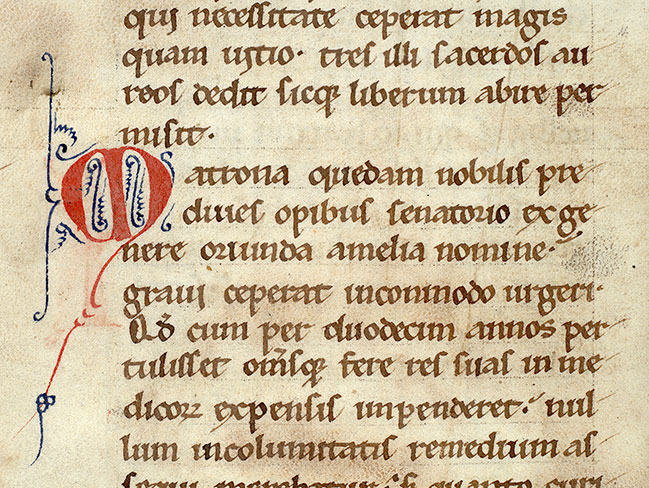 qui necessitate ceperat magis
quam uitio· tres illi sacerdos au
reos dedit sicq; liberum abire per
misit·
Matrona quedam nobilis pre
diues opibus senatorio ex ge
nere oriunda amelia nomine·
graui ceperat incommodo urgeri·
Qđ cum per duodecim annos per
tulisset om̄sq; fere res suas in me
dicoꝝ expensis impenderet· nul
lum incolumitatis remedium as
sequi merebatur· S; quanto curi